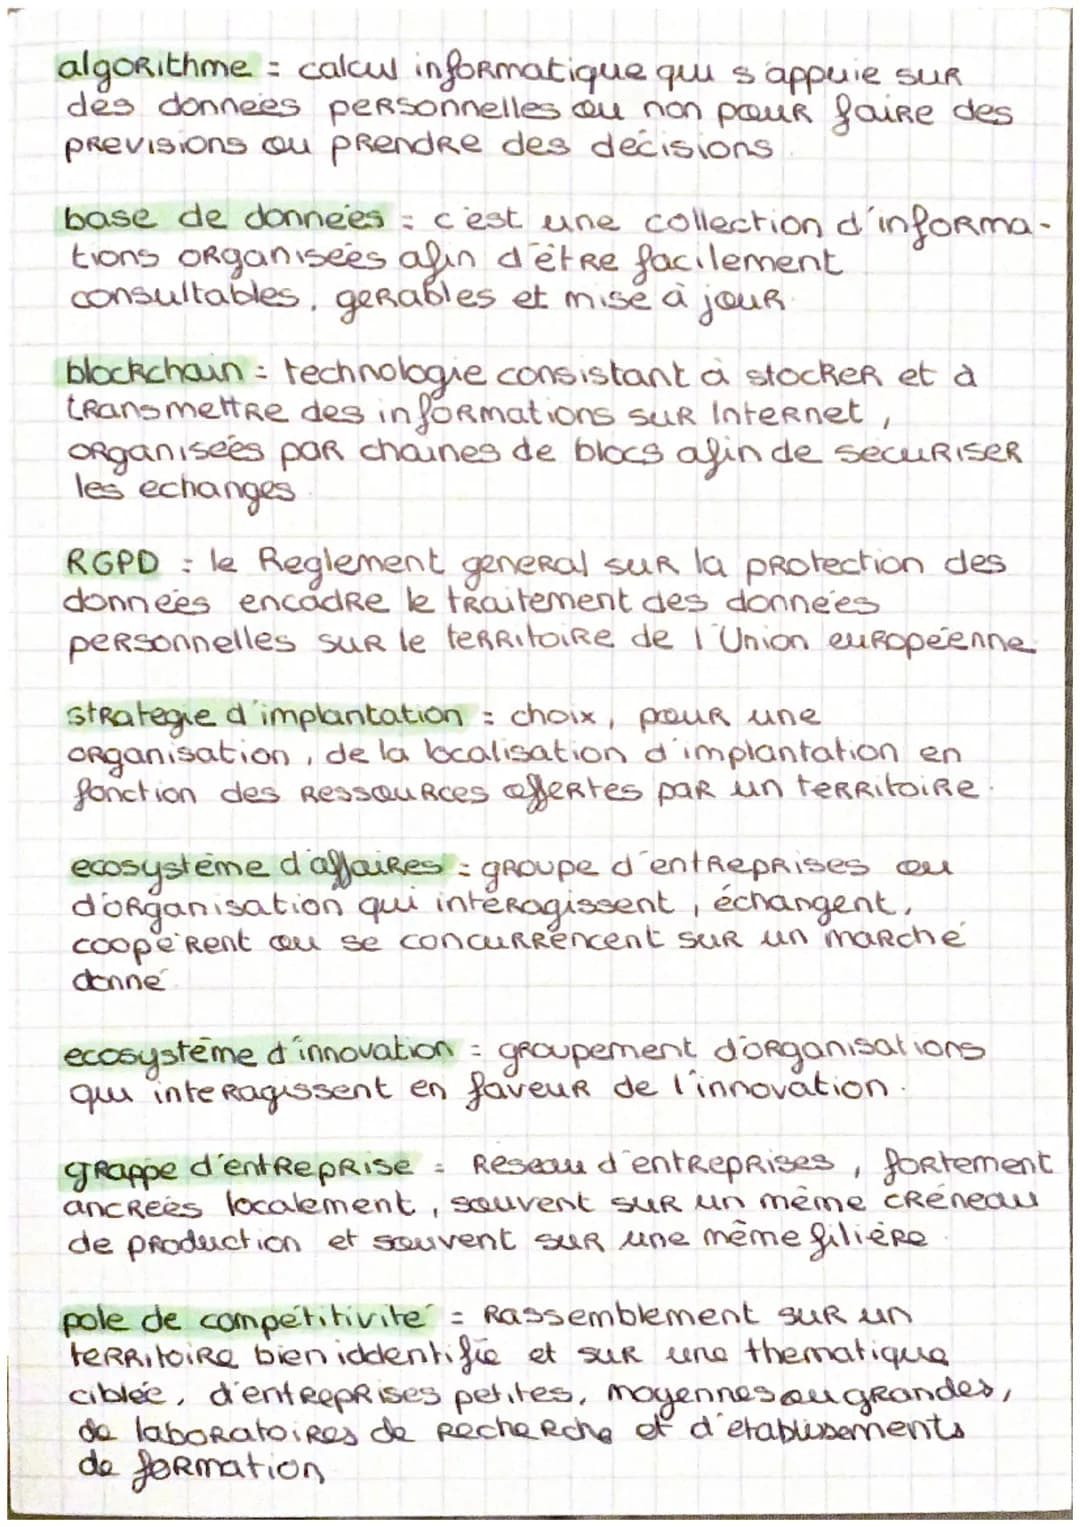 algorithme = calcul informatique qui s'appuie sur
des données personnelles ou non pour faire des
prévisions ou prendre des décisions
base de données = c'est une collection d'informa-
tions organisées afin d'être facilement
consultables, gérables et mise à jour.
blockchain = technologie consistant à stocker et à
transmettre des informations sur Internet,
organisées par chaines de blocs afin de sécuriser
les échanges.
RGPD : le Reglement general sur la protection des
données encadre le traitement des données
personnelles sur le territoire de l'Union européenne.
stratégie d'implantation : choix, pour une
organisation, de la localisation d'implantation en
fonction des ressources offertes par un territoire.
ecosystème d'affaires = groupe d'entreprises ou
d'organisation qui intéragissent, échangent,
coopèrent ou se concurrencent sur un marché
donné
ecosystème d'innovation = groupement d'organisations
qui interagissent en faveur de l'innovation.
grappe d'entreprise = Réseau d'entreprises, fortement
ancrées localement, souvent sur un même créneau
de production et souvent sur une même filière.
pole de compétitivité = Rassemblement sur un
territoire bien iddentifié et sur une thematique
ciblée, d'entreprises petites, moyennes ou grandes,
de laboratoires de recherche et d'etablisements
de formation